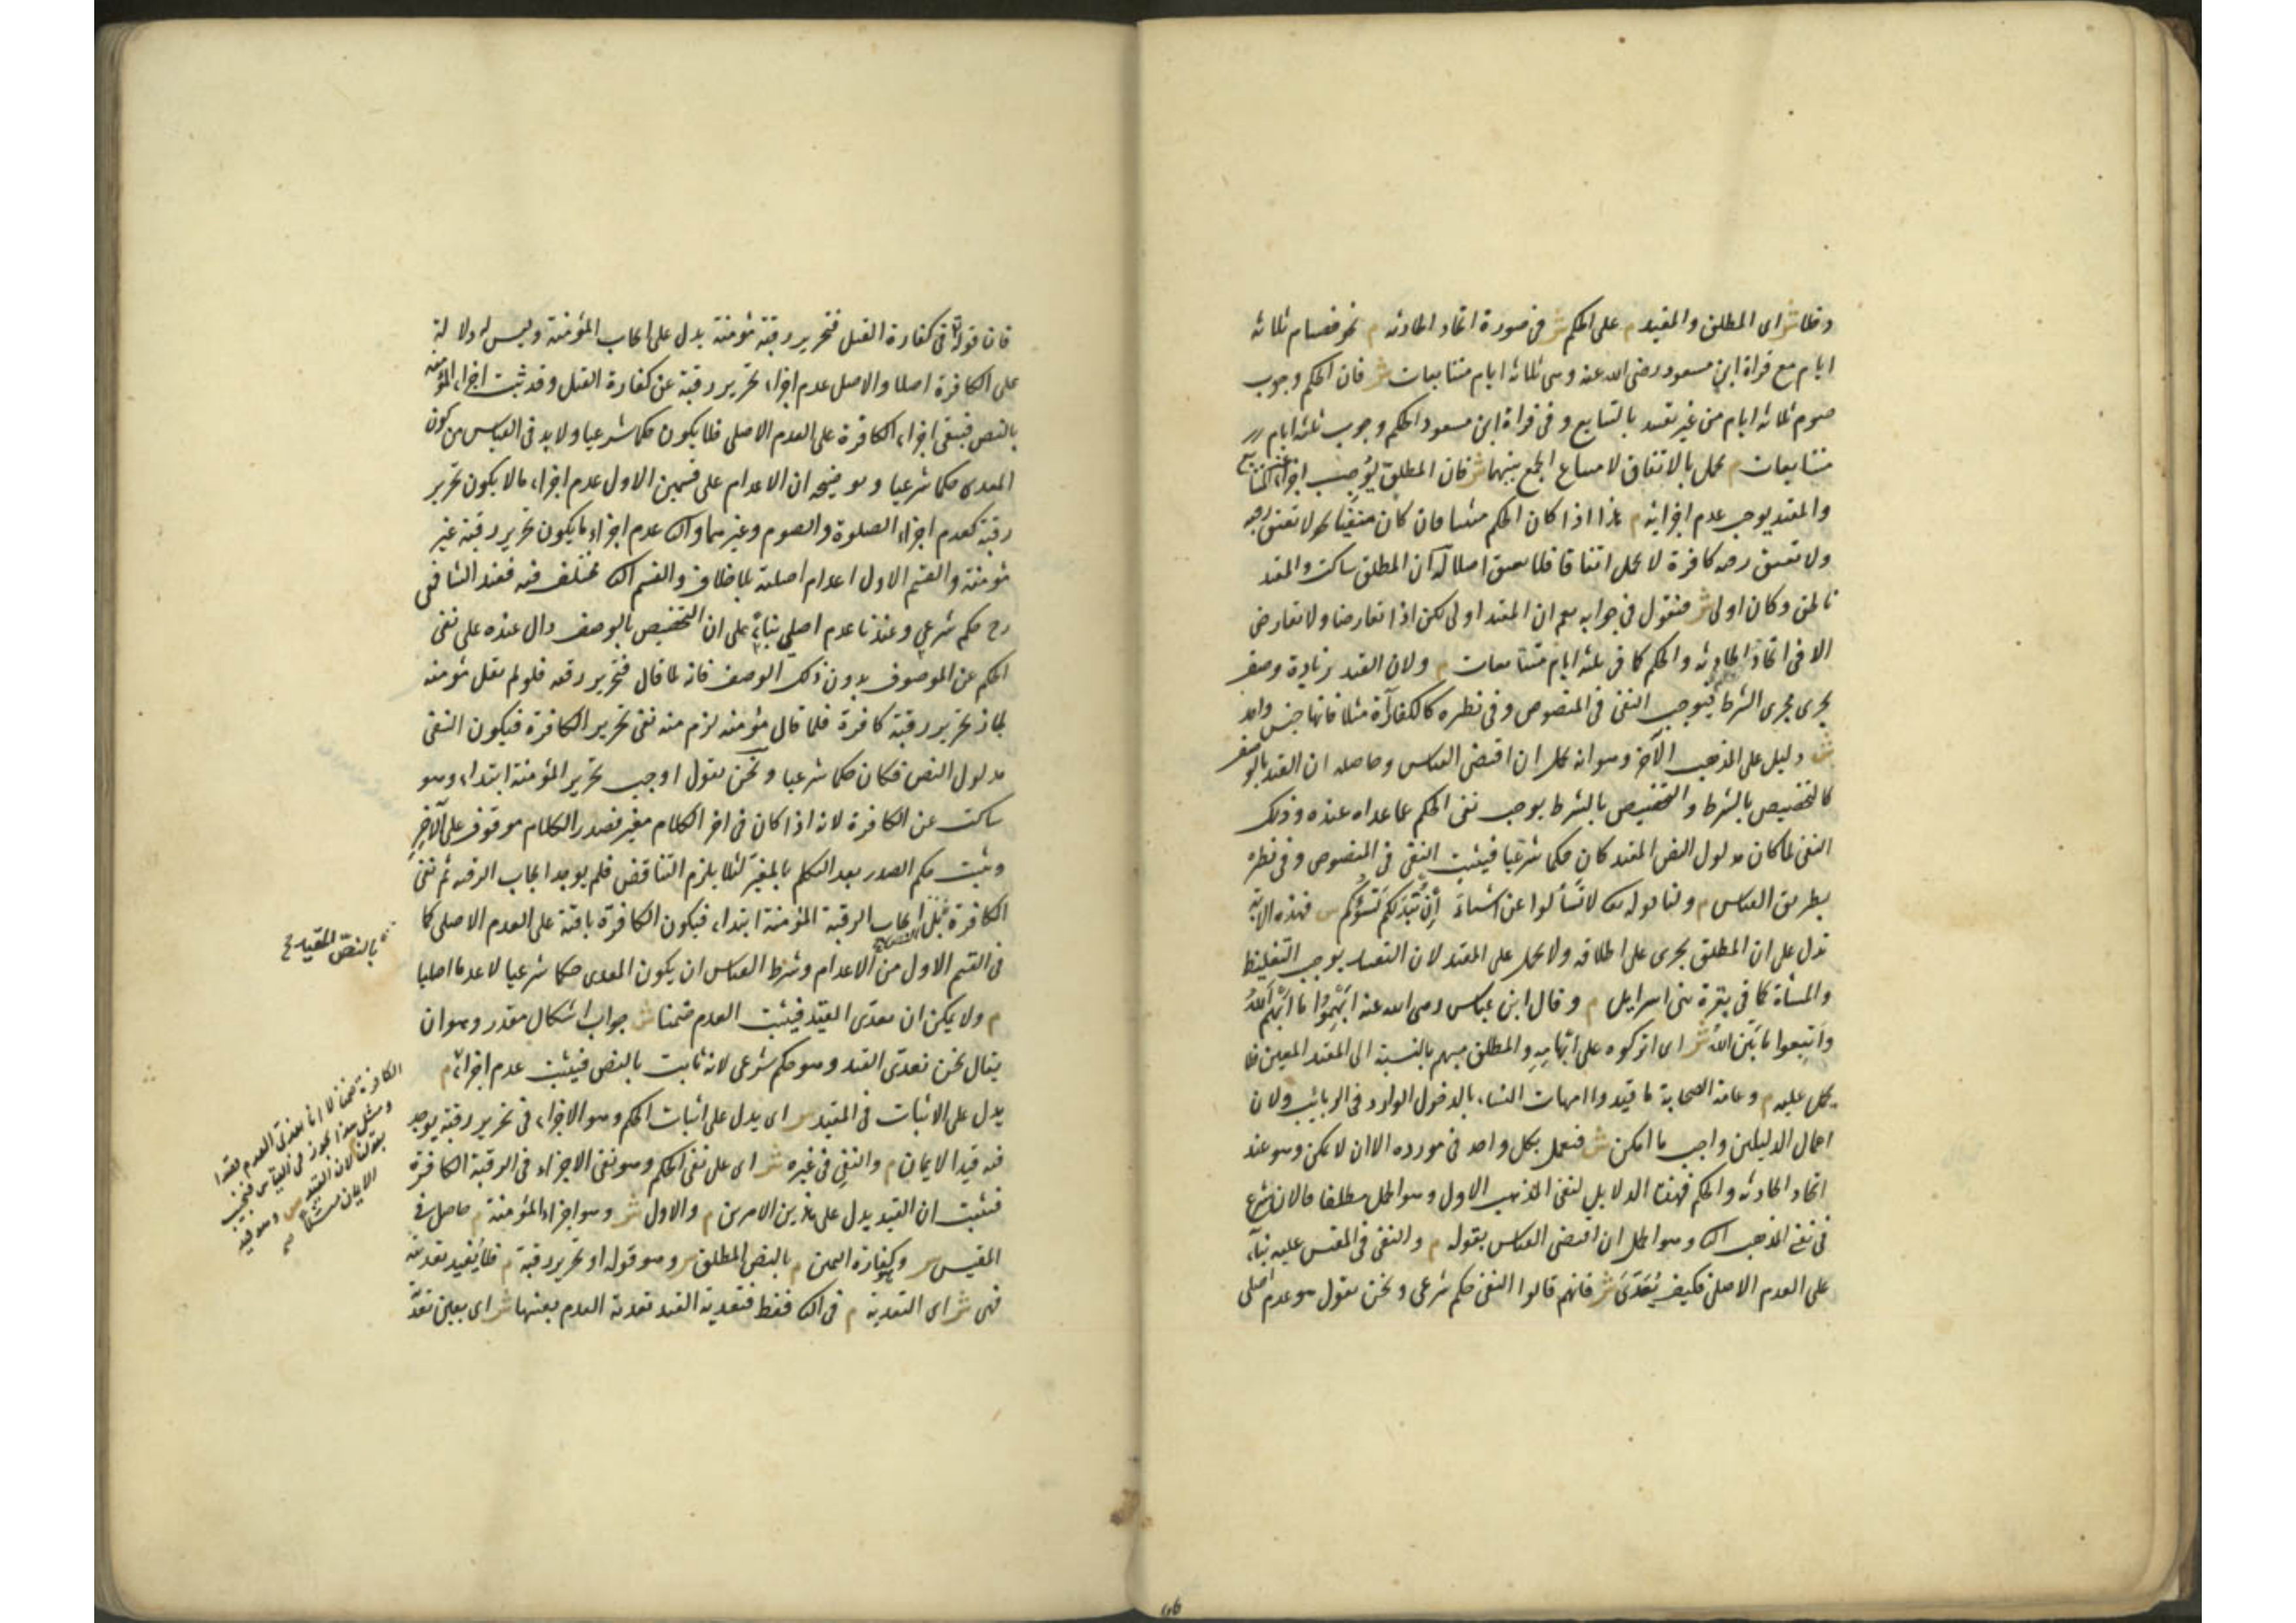 دخلا ش اى المطلق والمقيد م على الحكم ش فى صورة اتحاد الحادثة م نحو فصيام ثلاثة
ايام مع قراة ابن مسعود رضى الله عنه وهى ثلاثة ايام متتابعات ش فان الحكم وجوب
صوم ثلاثة ايام من غير تقييد بالتتابع و فى قراة ابن مسعود الحكم وجوب ثلثة ايام
متتابعات م يحمل بالاتفاق لامتناع الجمع بينهما ش فان المطلق يوجب اجزاء غير المتتابع
والمقيد يوجب عدم اجزائه م هذا اذا كان الحكم مثبتا فان كان منفيا نحو لا تعتق رقبة
ولا تعتق رقبة كافرة لا يحمل اتفاقا فلا يعتق اصلا له ان المطلق ساكت والمقيد
ناطق وكان اولى ش فنقول فى جوابه نعم ان المقيد اولى لكن اذا تعارضا ولا تعارض
الا فى اتحاد الحادثة والحكم كما فى ثلثة ايام متتابعات م ولان القيد زيادة وصف
يجرى مجرى الشرط فيوجب النفى فى المنصوص وفى نظيره كالكفارة مثلا فانها جنس واحد
ش دليل على المذهب الآخر وهو انه يحمل ان اقتضى القياس وحاصله ان القيد بالوصف
كالتخصيص بالشرط والتخصيص بالشرط يوجب نفى الحكم عما عداه عنده وذلك
النفى لما كان مدلول النص المقيد كان حكما شرعيا فيثبت النفى فى المنصوص وفى نظيره
بطريق القياس م ولنا قوله تعالى لا تسألوا عن اشياء إن تبد لكم تسؤكم ش فهذه الاية
تدل على ان المطلق يجرى على اطلاقه ولا يحمل على المقيد لان التقييد يوجب التغليظ
والمساة كما فى بقرة بنى اسرايل م وقال ابن عباس رضى الله عنه ابهموا ما ابهم الله
واتبعوا ما بين الله ش اى اتركوه على ابهامه والمطلق مبهم بالنسبة الى المقيد المعين فلا
يحمل عليه م وعامة الصحابة ما قيدوا امهات النساء بالدخول الوارد فى الربائب ولان
اعمال الدليلين واجب ما امكن ش فنعمل بكل واحد فى مورده الا ان لا يمكن وهو عند
اتحاد الحادثة والحكم فهذا الدلايل لنفى المذهب الاول وهو الحمل مطلقا فالان شرع
فى نفى المذهب الثانى وهو الحمل ان اقتضى القياس بقوله م والنفى فى المقيس عليه بناء
على العدم الاصلى فكيف يُعَدَّى ش فانهم قالوا النفى حكم شرعى ونحن نقول هو عدم اصلى
فان قوله تعالى فى كفارة القتل فتحرير رقبة مؤمنة يدل على ايجاب المؤمنة وليس له دلالة
على الكافرة اصلا والاصل عدم اجزاء تحرير رقبة عن كفارة القتل وقد ثبت اجزاء المؤمنة
بالنص فبقى اجزاء الكافرة على العدم الاصلى فلا يكون حكما شرعيا ولا بد فى القياس من كون
المعدى حكما شرعيا وتوضيحه ان الاعدام على قسمين الاول عدم اجزاء ما لا يكون تحرير
رقبة كعدم اجزاء الصلوة والصوم وغيرهما والثانى عدم اجزاء ما يكون تحرير رقبة غير
مؤمنة والقسم الاول اعدام اصلية بلا خلاف والقسم الثانى مختلف فيه فعند الشافعى
رح حكم شرعى وعندنا عدم اصلى بناء على ان التخصيص بالوصف دال عنده على نفى
الحكم عن الموصوف بدون ذلك الوصف فانه لما قال فتحرير رقبة فلو لم يقل مؤمنة
لجاز تحرير رقبة كافرة فلما قال مؤمنة لزم منه نفى تحرير الكافرة فيكون النفى
مدلول النص فكان حكما شرعيا ونحن نقول اوجب تحرير المؤمنة ابتداء وهو
ساكت عن الكافرة لانه اذا كان فى اخر الكلام مغير فصدر الكلام موقوف على الآخر
ويثبت حكم الصدر بعد التكلم بالمغير لئلا يلزم التناقض فلم يوجد ايجاب الرقبة ثم نفى
الكافرة بل ايجاب الرقبة المؤمنة ابتداء فيكون الكافرة باقية على العدم الاصلى كما
فى القسم الاول من الاعدام وشرط القياس ان يكون المعدى حكما شرعيا لا عدما اصليا
م ولا يمكن ان يعدى القيد فيثبت العدم ضمنا ش جواب اشكال مقدر وهو ان
يقال نحن نعدى القيد وهو حكم شرعى لانه ثابت بالنص فيثبت عدم اجزاء م
يدل على الاثبات فى المقيد ش اى يدل على اثبات الحكم وهو الاجزاء فى تحرير رقبة يوجد
فيه قيد الايمان م والنفى فى غيره ش اى على نفى الحكم وهو نفى الاجزاء فى الرقبة الكافرة
فثبت ان القيد يدل على هذين الامرين م والاول ش وهو اجزاء المؤمنة م حاصل فى
المقيس ش وهو كفارة اليمين م بالنص المطلق ش وهو قوله او تحرير رقبة م فلا يفيد تعديته
فهى ش اى التعدية م فى الثانى فقط فتعدية القيد تعدية العدم بعينها ش اى بعين تعد
بالنص المقيد صح
الكافرة ضمنا لا انا نعدى العدم قصدا
ومثل هذا يجوز فى القياس فنجيب
بقولنا لان القيد ش وهو قيد
الايمان مثلا صح